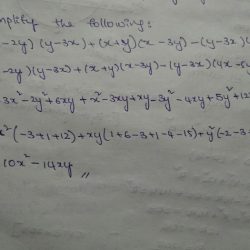 mplify the following:
-2y) (y-3x) + (x+y) (x-3y) - (y-3x)(
-2y)(y-3x) + (x+y)(x-3y) - (y-3x)(4x-5
3x²-2y²+6xy + x²-3xy+xy-3y²-4xy+5y²+12
x²(-3+1+12) + xy(1+6-3+1-4-15) + y²(-2-3-
10x²-14xy //